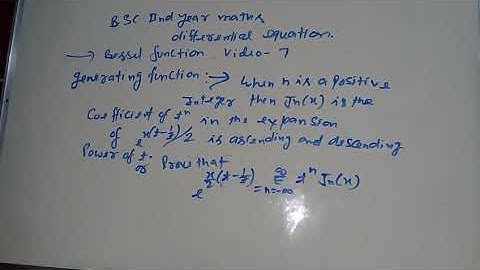 BSC IInd year maths
differential equation.
→ Bessel function. Video- 7
generating function :→ when n is a positive
Integer then Jn(x) is the
Coefficient of zⁿ in the expansion
of e^x(z-1/z)/2 is ascending and descending
Power of z.
or Prove that
e^x/2(z-1/z) = ∞Σn=-∞ zⁿ Jn(x)